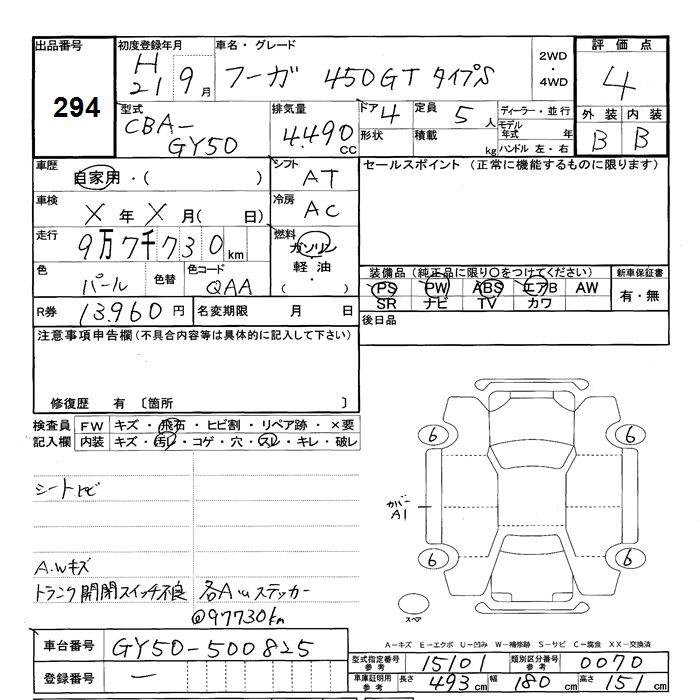 出品番号 初度登録年月 車名・グレード 評価点
294
H21 9月 フーガ 450GT タイプS 2WD・4WD 4
型式 排気量 ドア 4 定員 5人 ディーラー・並行 外装 内装
CBA-GY50 4.490CC 形状 積載 kg モデル年式 年 B B
ハンドル 左・右
車歴 自家用・( ) シフト AT セールスポイント (正常に機能するものに限ります)
車検 X年X月( 日) 冷房 AC
走行 9万7千730km 燃料 ガソリン・軽油・( )
色 パール 色替 色コード QAA
装備品 (純正品に限り○をつけてください) 新車保証書
PS PW ABS エアB AW 有・無
SR ナビ TV カワ
R券 13,960円 名変期限 月 日 後日品
注意事項申告欄(不具合内容等は具体的に記入して下さい)
修復歴 有 〔箇所 〕
検査員 FW キズ・飛石・ヒビ割・リペア跡・×要
記入欄 内装 キズ・汚レ・コゲ・穴・スレ・キレ・破レ
6 6
シートトビ
カバーA1
6 6
A.Wキズ
トランク開閉スイッチ不良 各AWステッカー
@97730km
スペア
A－キズ E－エクボ U－凹み W－補修跡 S－サビ C－腐食 XX－交換済
車台番号 GY50-500825
登録番号 —
型式指定番号 参考 15101 類別区分番号 参考 0070
車庫証明用 参考 長さ 493cm 幅 180cm 高さ 151cm